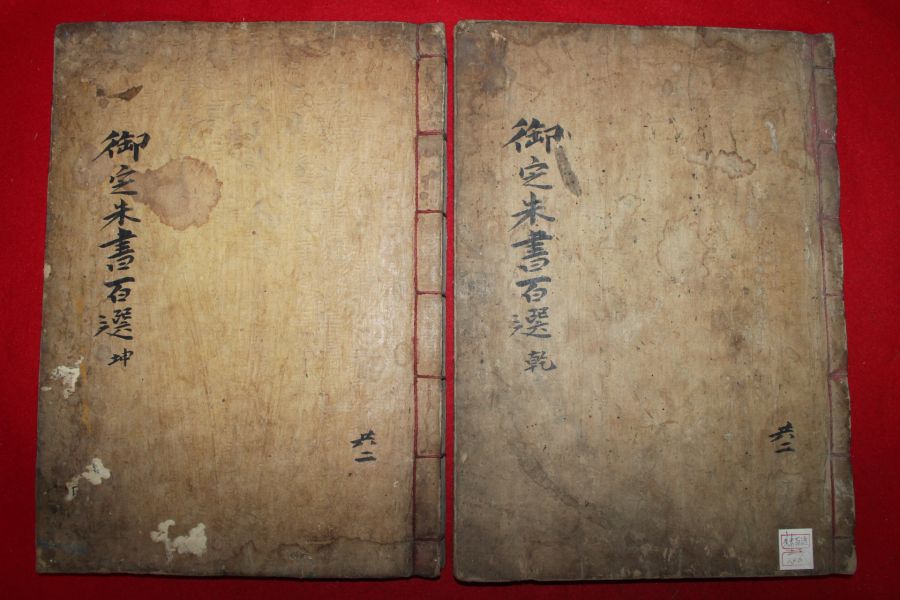 御定朱書百選 乾
共二
御定朱書百選 坤
共二